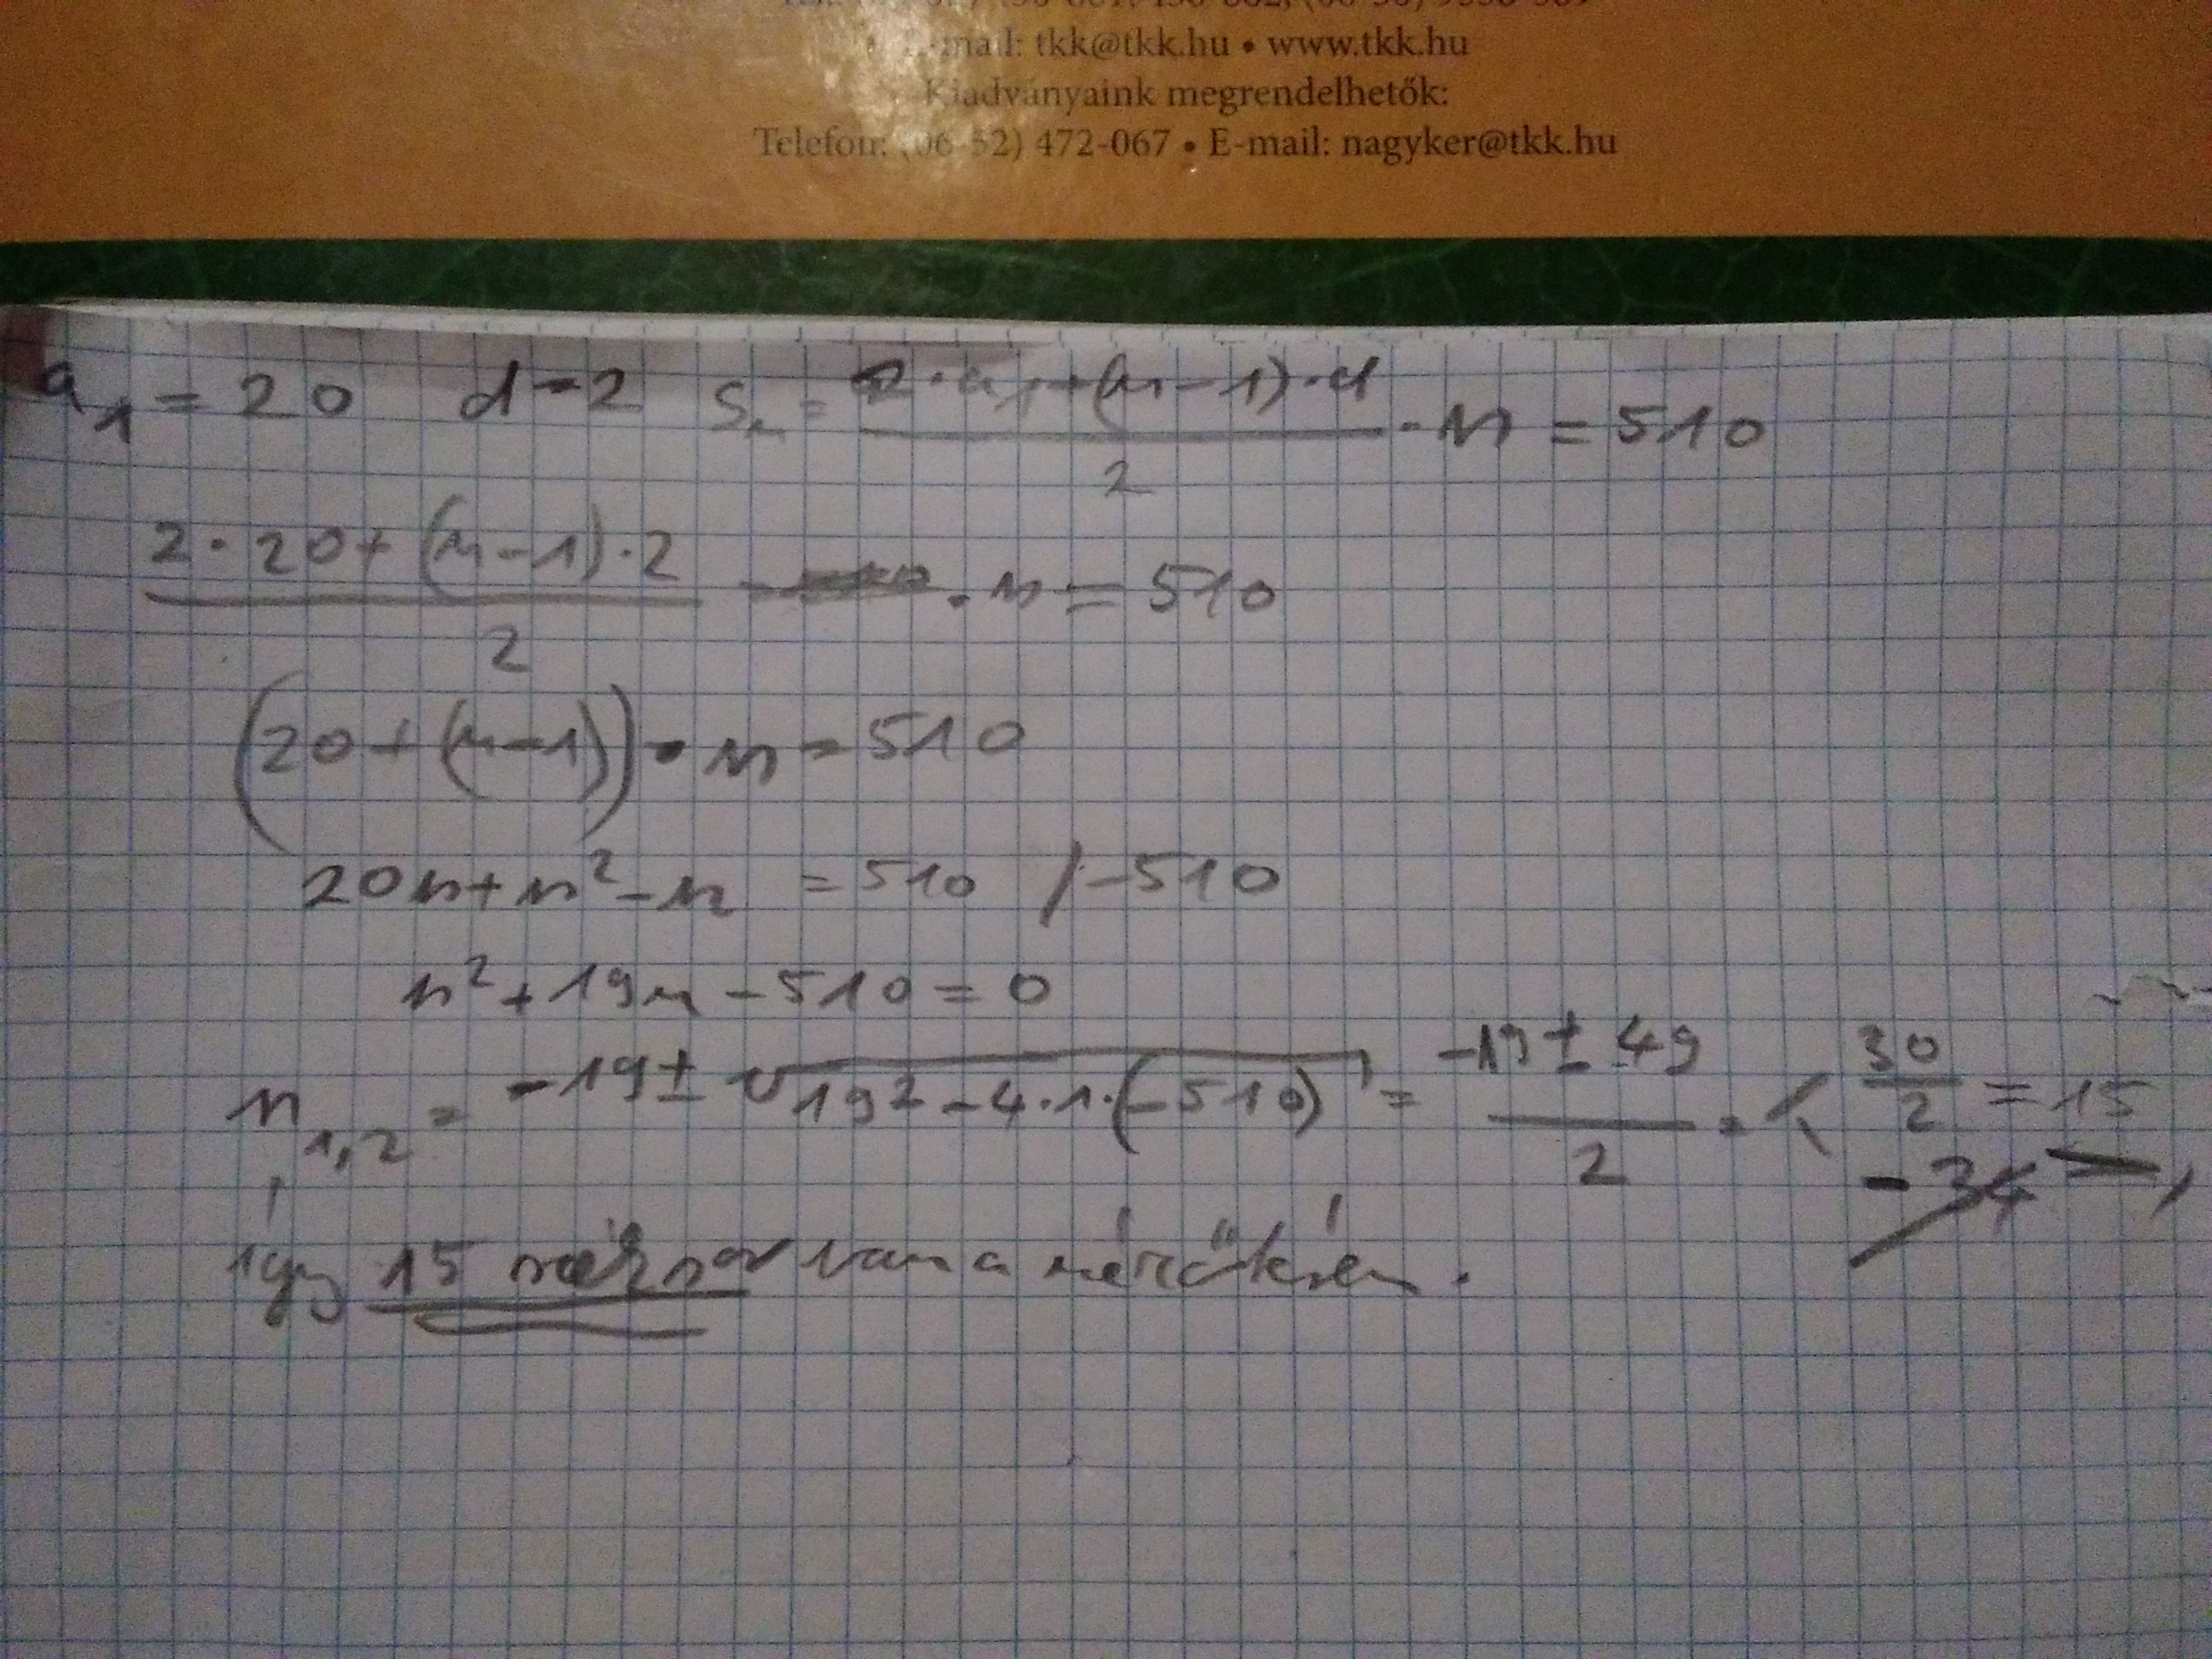 E-mail: tkk@tkk.hu • www.tkk.hu
Kiadványaink megrendelhetők:
Telefon: (06-52) 472-067 • E-mail: nagyker@tkk.hu
a₁ = 20 d=2 Sₙ = (2·a₁+(n-1)·d)/2 · n = 510
(2·20+(n-1)·2)/2 · n = 510
(20+(n-1))·n=510
20n+n²-n =510 /-510
n²+19n-510=0
n₁,₂ = -19±√(19²-4·1·(-510)) = (-19±49)/2 = < 30/2 = 15
-34
így 15 széksor van a nézőtéren.